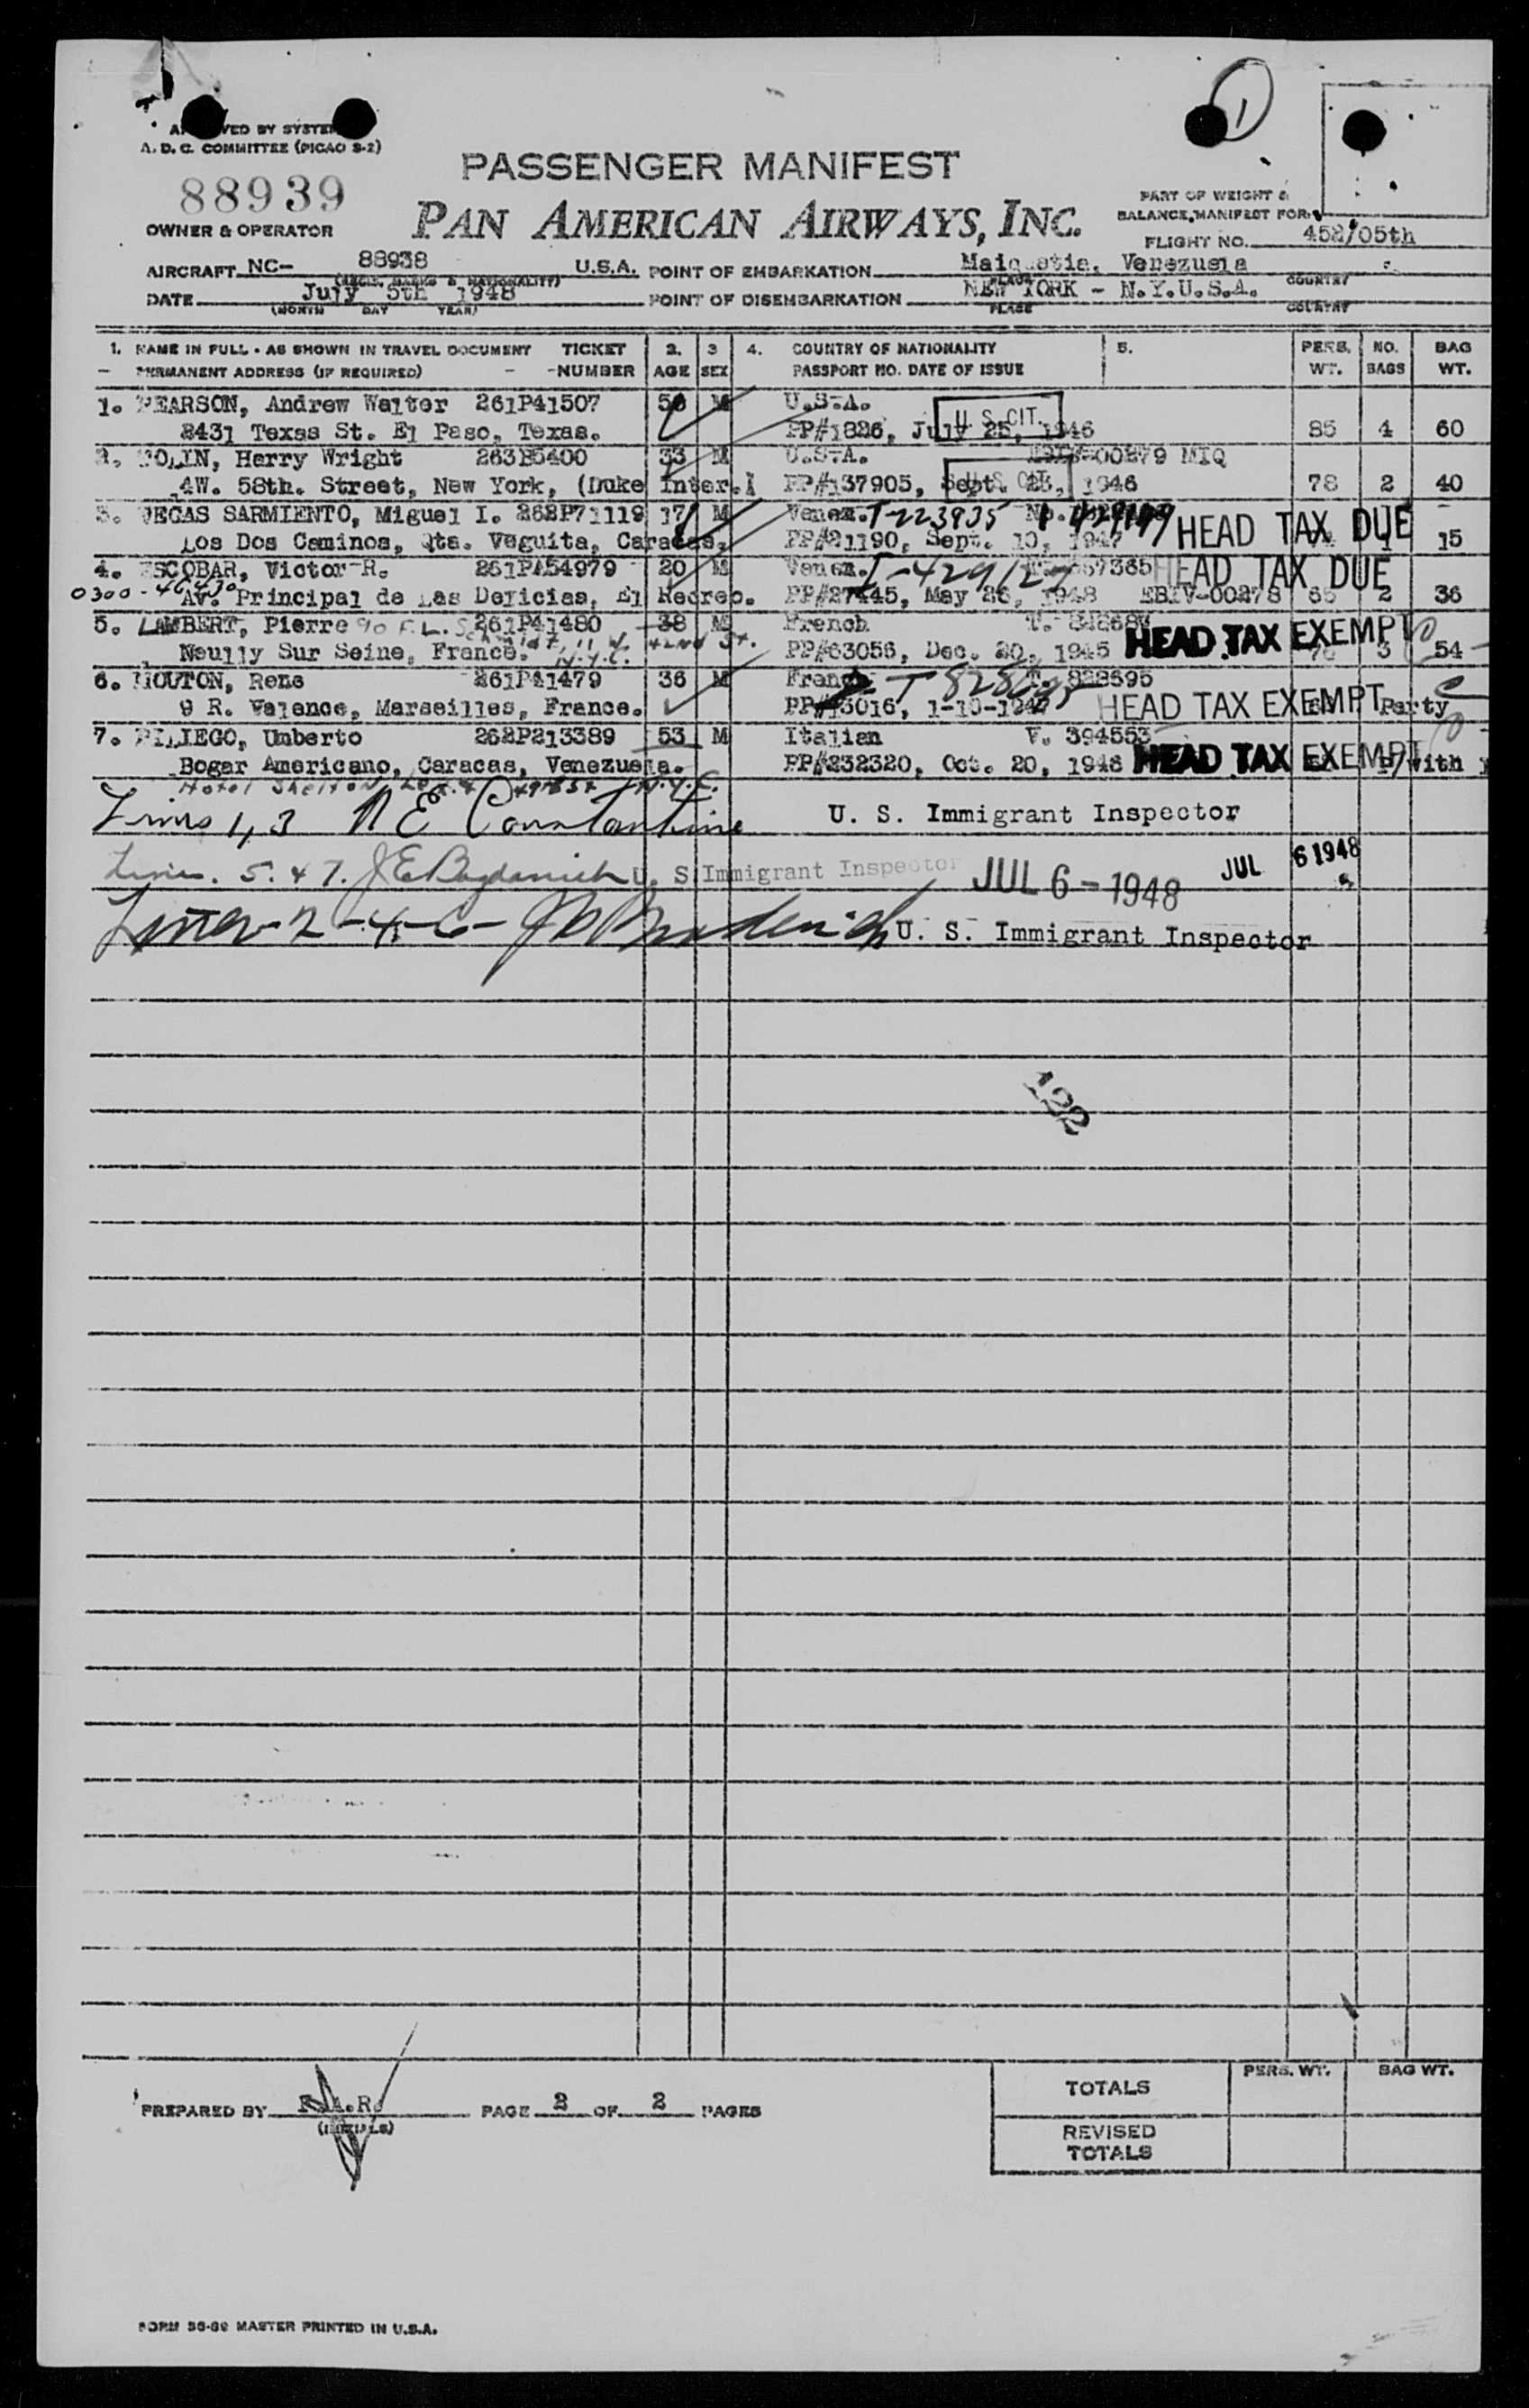 BY SYSTEM
A. D. C. COMMITTEE (PICAO S-2)
1
PASSENGER MANIFEST
88939
PAN AMERICAN AIRWAYS, INC.
PART OF WEIGHT &
BALANCE MANIFEST FOR
OWNER & OPERATOR
FLIGHT NO. 452/05th
AIRCRAFT NC- 88938 U.S.A. POINT OF EMBARKATION Maiquetia, Venezuela
PLACE COUNTRY
DATE July 5th 1948 POINT OF DISEMBARKATION NEW YORK - N.Y.U.S.A.
(MONTH DAY YEAR) PLACE COUNTRY
1. NAME IN FULL - AS SHOWN IN TRAVEL DOCUMENT TICKET 2. 3 4. COUNTRY OF NATIONALITY 5. PERS. NO. BAG
PERMANENT ADDRESS (IF REQUIRED) NUMBER AGE SEX PASSPORT NO. DATE OF ISSUE WT. BAGS WT.
1. PEARSON, Andrew Walter 261P41507 M U.S.A.
2431 Texas St. El Paso, Texas. PP#1826, July 25, 1946 U. S. CIT. 85 4 60
2. Harry Wright 263B5400 33 M U.S.A. 00279 MIQ
4W. 58th. Street, New York, (Duke Inter.) PP#137905, Sept. 1946 U. S. CIT. 78 2 40
3. VEGAS SARMIENTO, Miguel I. 262P71119 17 M Venez. T-223935 HEAD TAX DUE
Los Dos Caminos, Qta. Veguita, Caracas. PP#21190, Sept. 10, 1947 15
4. ESCOBAR, Victor R. 261PA54979 20 M Venez. HEAD TAX DUE
0300 Av. Principal de Las Delicias, El Recreo. May 1948 EBIV-00278 65 2 36
5. LAMBERT, Pierre 261P41480 38 M French HEAD TAX EXEMPT
Neully Sur Seine, France. N.Y.C. 42nd St. PP#63056, Dec. 20, 1945 3 54
6. MOUTON, Rene 261P41479 36 M
9 R. Valence, Marseilles, France. HEAD TAX EXEMPT Party
7. PILIEGO, Umberto 262P213389 53 M Italian V. 394553
Bogar Americano, Caracas, Venezuela. PP#232320, Oct. 20, 1946 HEAD TAX EXEMPT with
Hotel Shelton N.Y.C.
Lines 1, 3 N E Constantine U. S. Immigrant Inspector
Lines. 5. & 7. U. S. Immigrant Inspector JUL 6 - 1948 JUL 6 1948
2 - 4 - 6 - U. S. Immigrant Inspector
122
PREPARED BY PAGE 2 OF 2 PAGES
(INITIALS)
PERS. WT. BAG WT.
TOTALS
REVISED
TOTALS
FORM 36-89 MASTER PRINTED IN U.S.A.